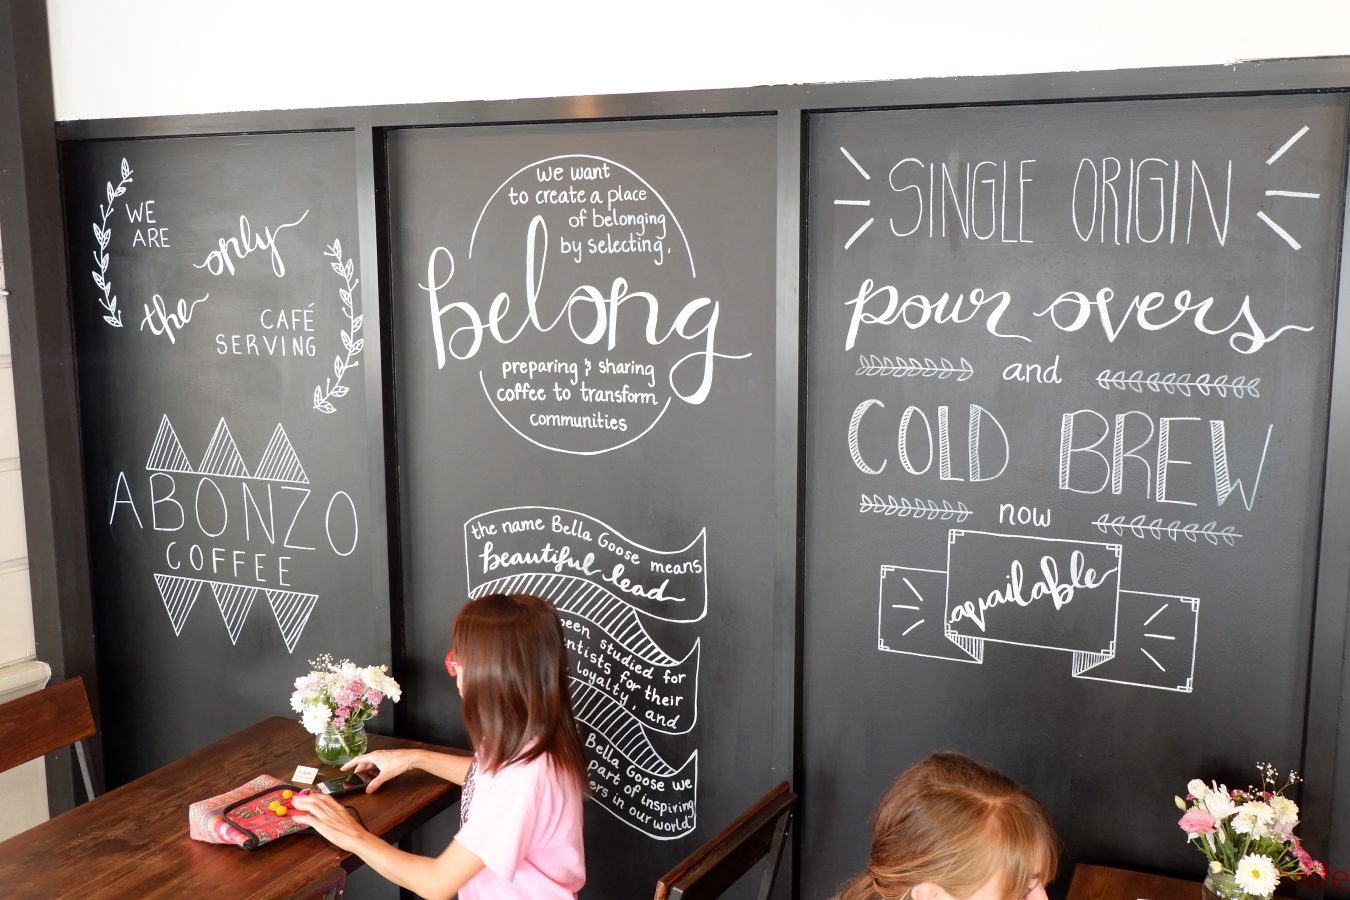 WE
ARE
the only
CAFÉ
SERVING
ABONZO
COFFEE
we want
to create a place
of belonging
by selecting,
belong
preparing & sharing
coffee to transform
communities
the name Bella Goose means
beautiful lead
been studied for
for their
loyalty, and
Bella Goose we
part of inspiring
in our world
SINGLE ORIGIN
pour overs
and
COLD BREW
now
available
life